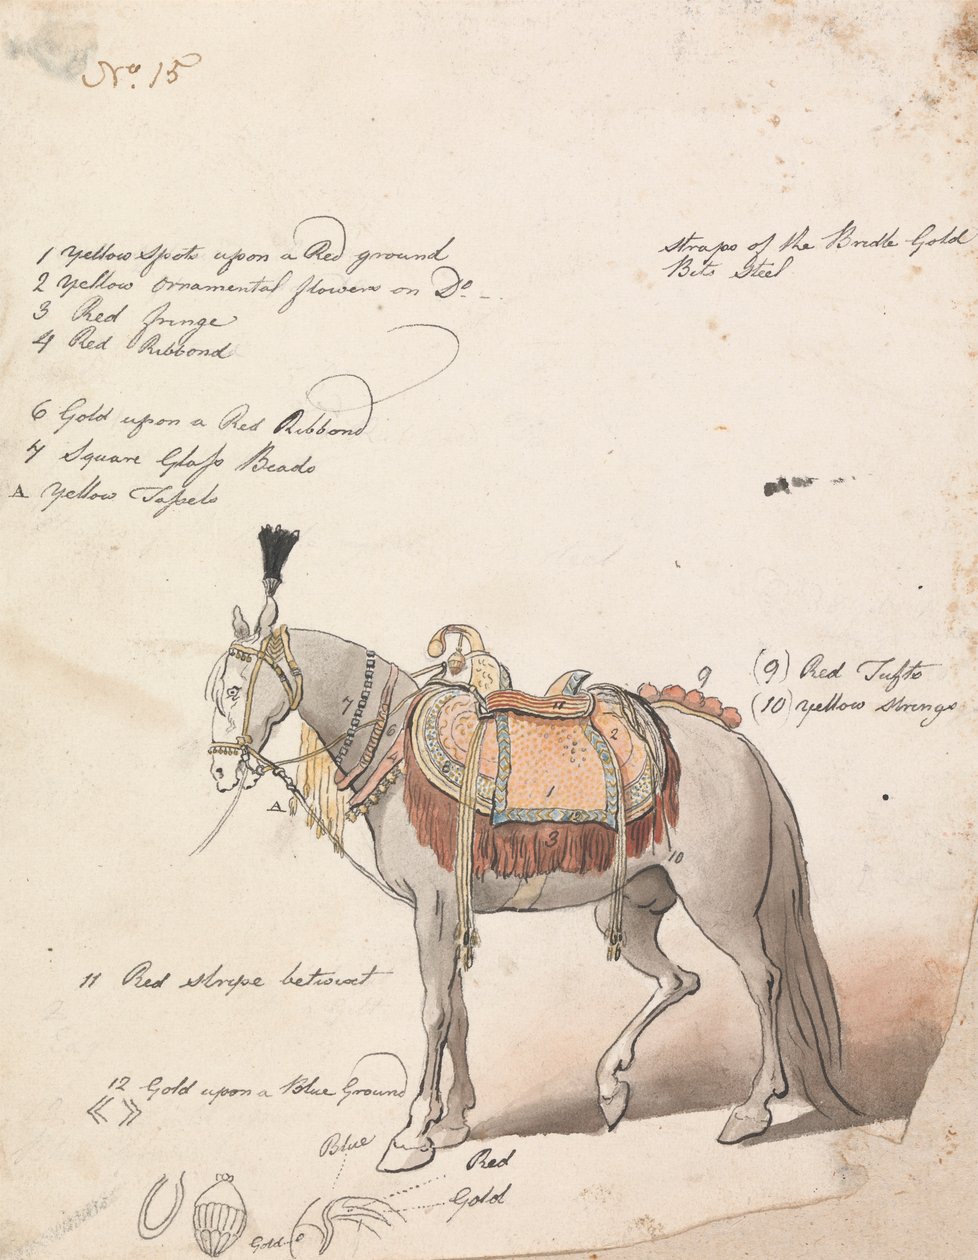 No. 15
1 Yellow Spots upon a Red ground
2 Yellow Ornamental flowers on Do
3 Red fringe
4 Red Ribbond
6 Gold upon a Red Ribbond
7 Square Glass Beads
A Yellow Tassels
Straps of the Bridle Gold
Bits Steel
9
(9) Red Tufts
(10) Yellow Strings
7
6
11
2
6
1
12
A
3
10
11 Red stripe betwixt
12 Gold upon a Blue Ground
Blue
Red
Gold
Gold